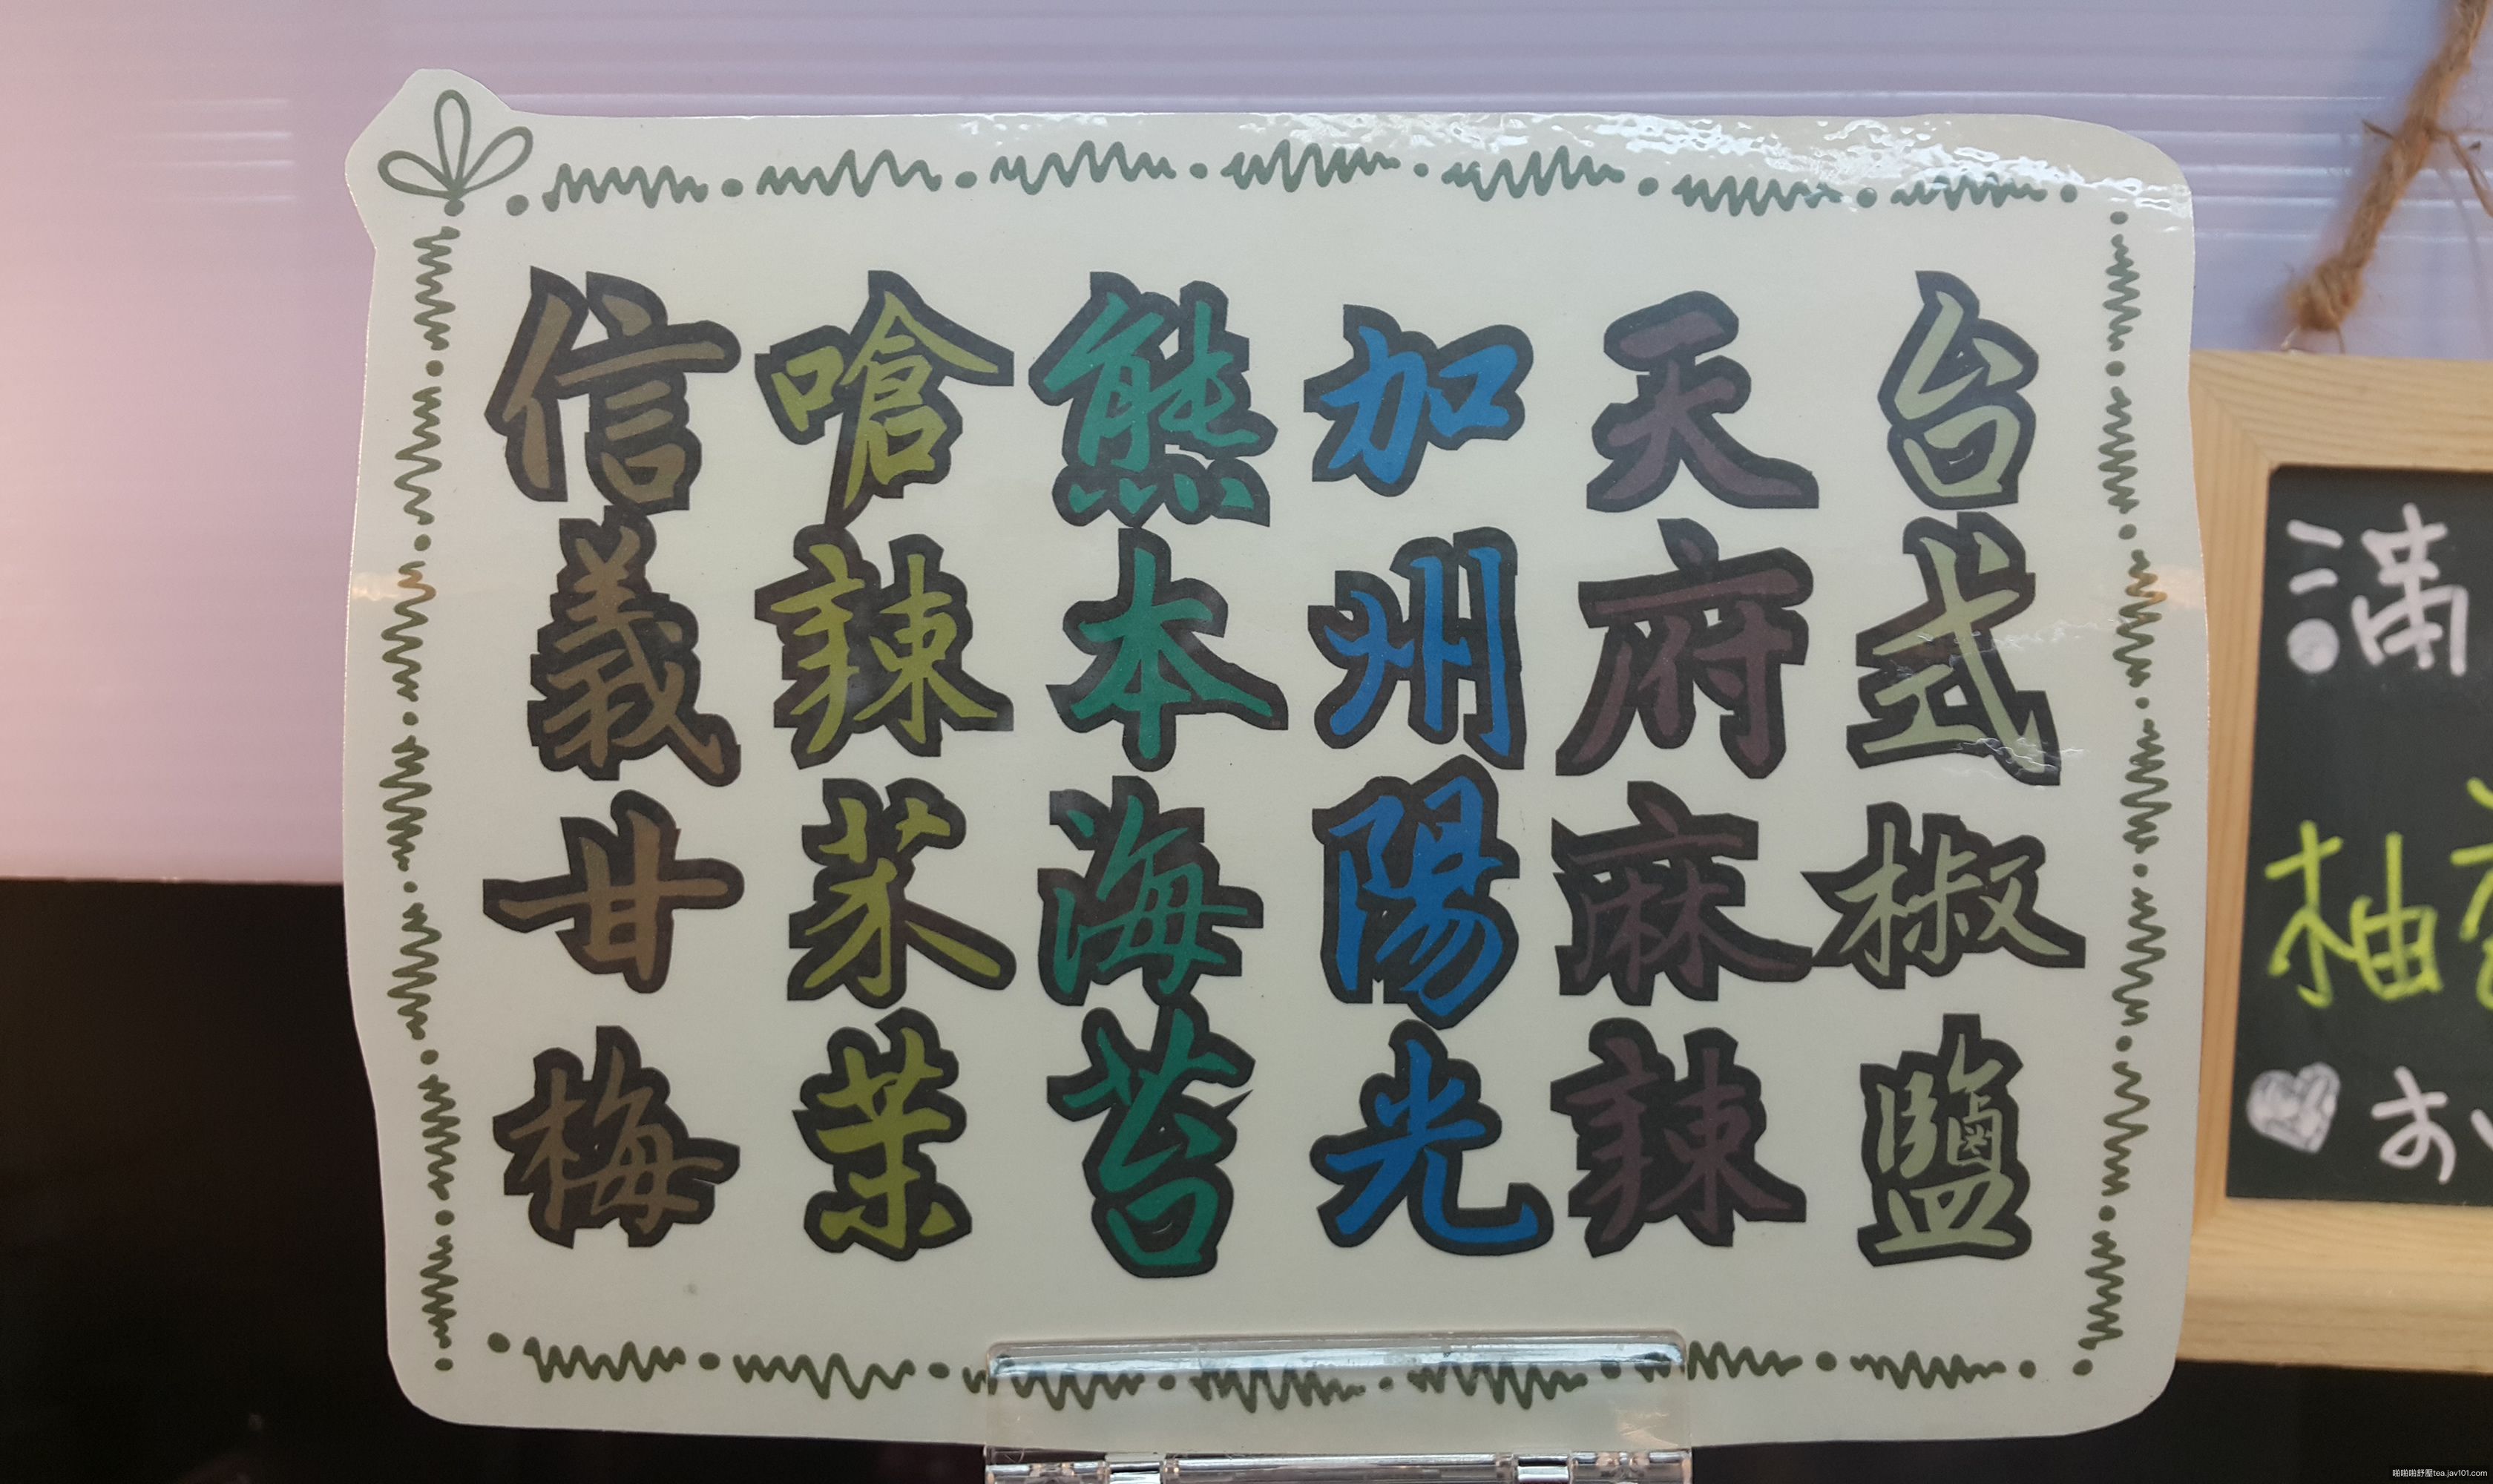 台式椒鹽
天府麻辣
加州陽光
熊本海苔
嗆辣芥茉
信義甘梅
滿
柚
お
啪啪啪舒壓tea.jav101.com